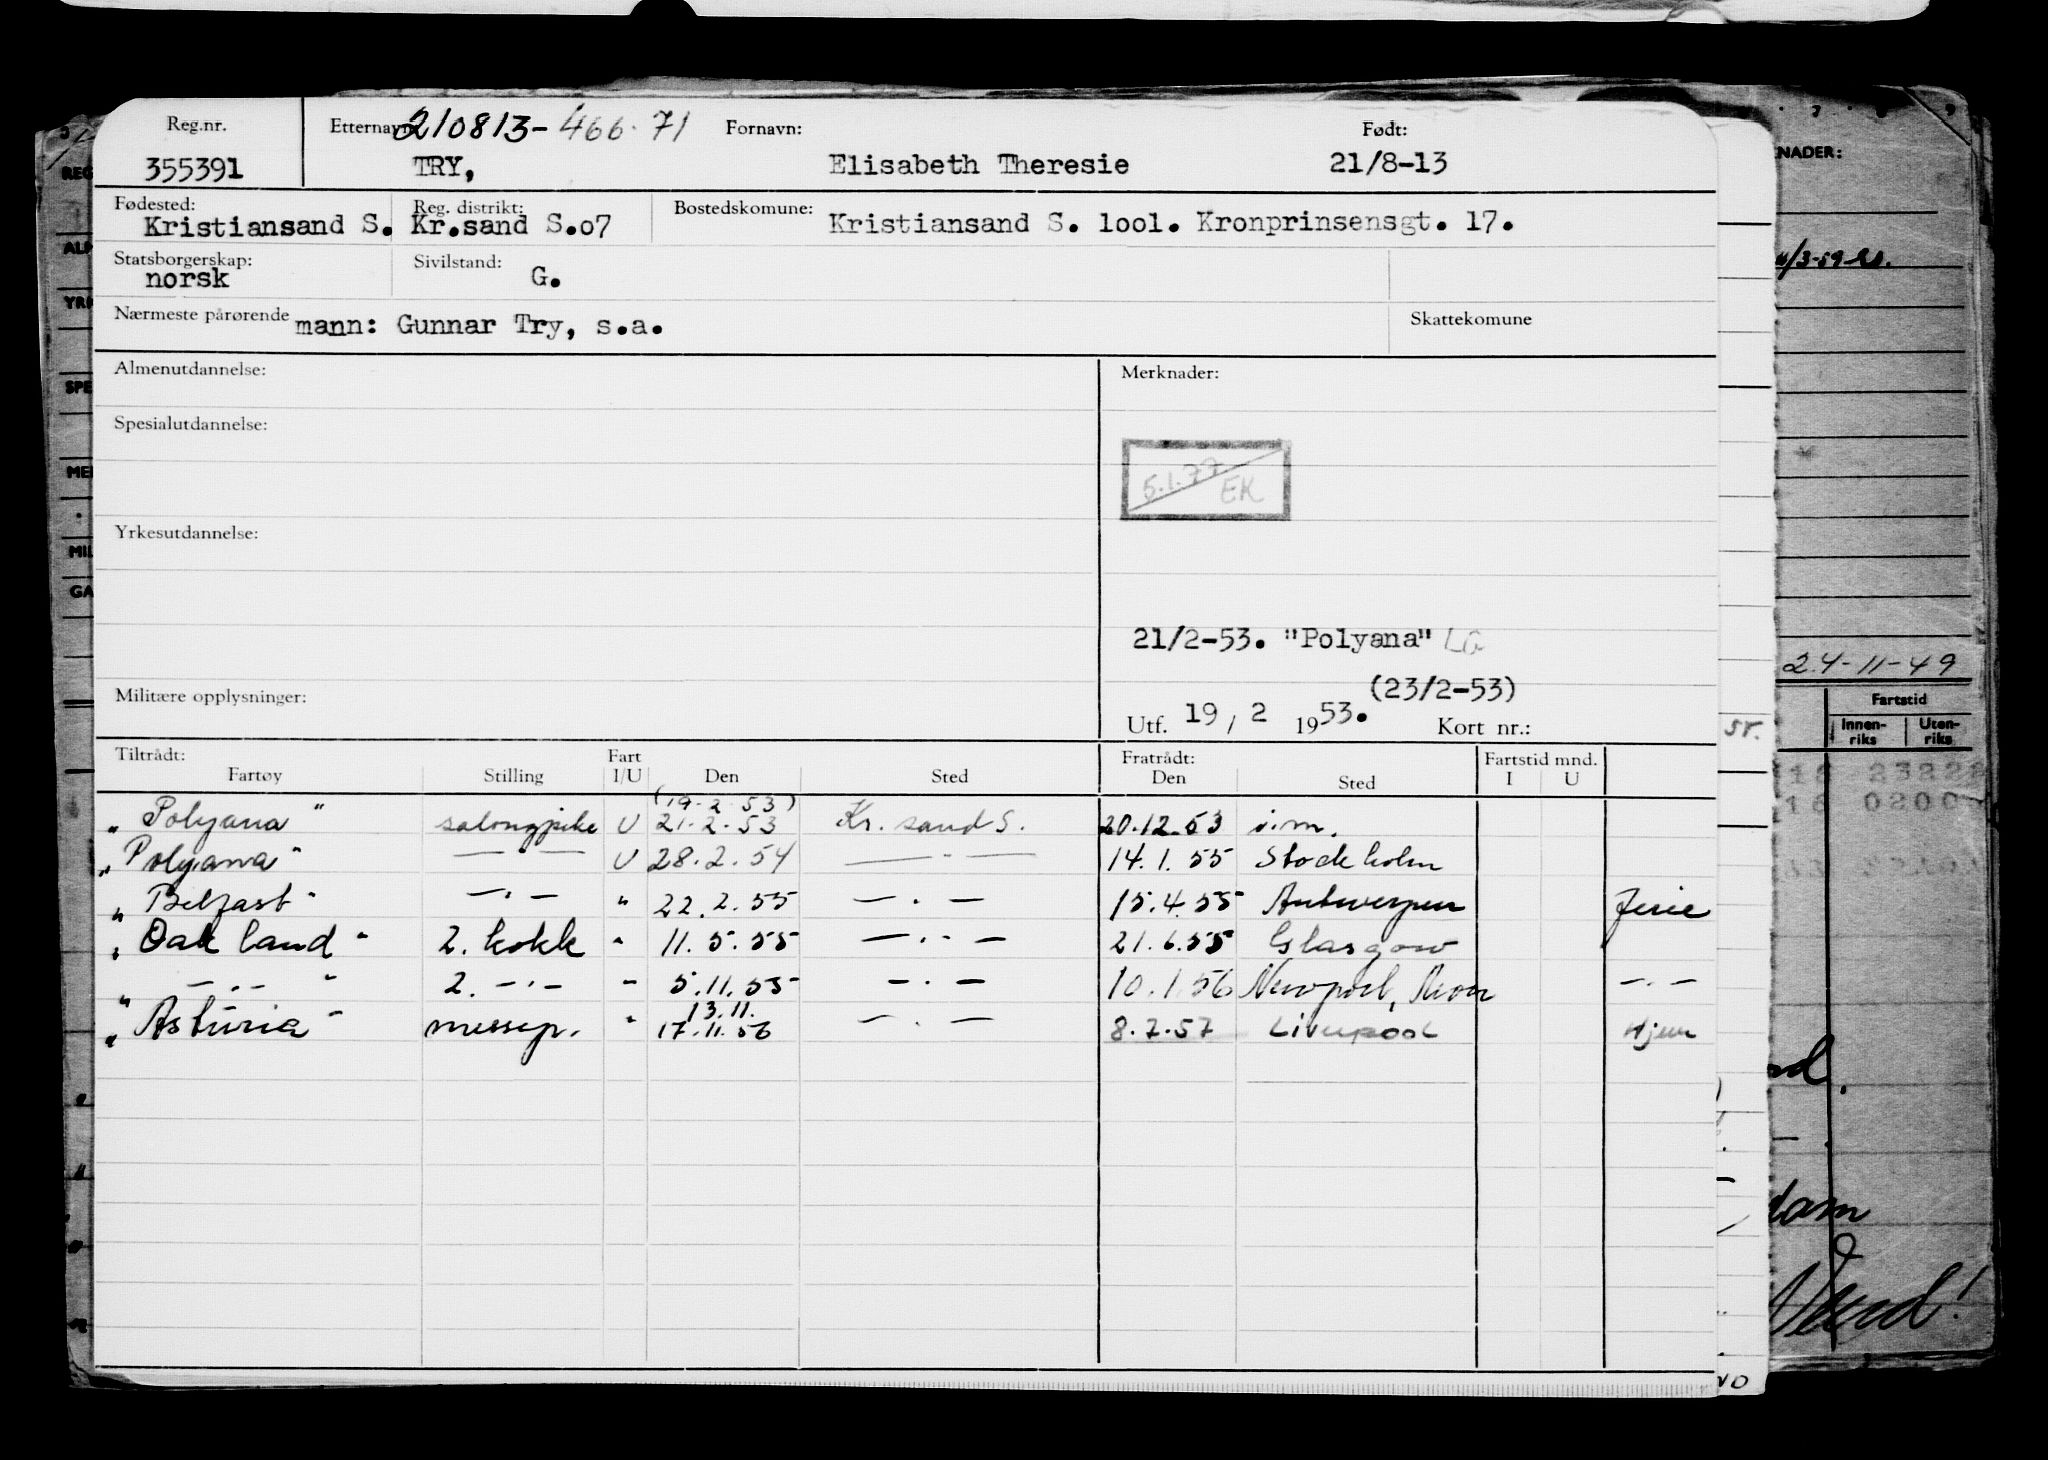 Reg.nr. Etternavn 210813-466.71 Fornavn: Født:
355391 TRY, Elisabeth Theresie 21/8-13
Fødested: Reg. distrikt: Bostedskomune:
Kristiansand S. Kr.sand S.o7 Kristiansand S. 1ool. Kronprinsensgt. 17.
Statsborgerskap: Sivilstand:
norsk G.
Nærmeste pårørende mann: Gunnar Try, s.a. Skattekomune
Almenutdannelse: Merknader:
Spesialutdannelse:
5.1.77 EK
Yrkesutdannelse:
21/2-53. "Polyana" LG
Militære opplysninger: (23/2-53)
Utf. 19 / 2 1953. Kort nr.:
Tiltrådt: Fart Fratrådt: Fartstid mnd.
Fartøy Stilling I/U Den Sted Den Sted I U
(19.2.53)
"Polyana" salongpike U 21.2.53 Kr. sand S. 20.12.53 i.m.
"Polyana" — · — U 28.2.54 — · — 14.1.55 Stockholm
"Belfast" — · — " 22.2.55 — · — 15.4.55 Antwerpen ferie
"Oakland" 2. kokk " 11.5.55 — · — 21.6.55 Glasgow
" — · — " 2. — · — " 5.11.55 — · — 10.1.56 Newport, Mon — · —
13.11.
"Asturia" messep. " 17.11.56 — · — 8.7.57 Liverpool Hjem
KNADER:
/3-59
24-11-49
Fartstid
Innen-riks Uten-riks
dam